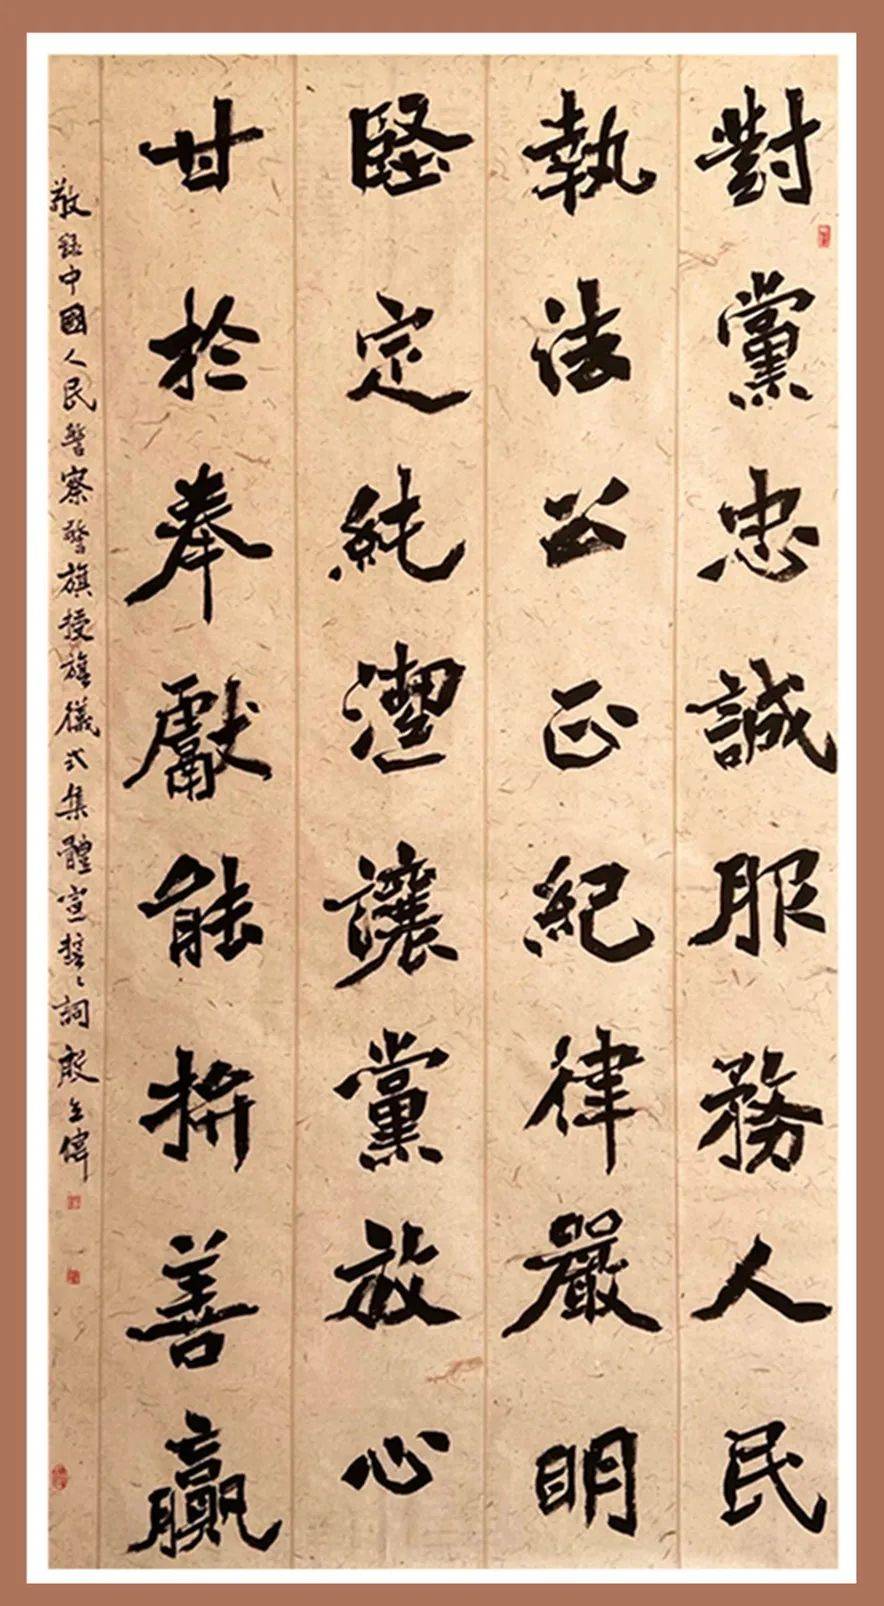 對黨忠誠服務人民
執法公正紀律嚴明
堅定純潔讓黨放心
甘於奉獻能拚善贏
敬錄中國人民警察警旗授旗儀式集體宣誓〻詞 殷 偉